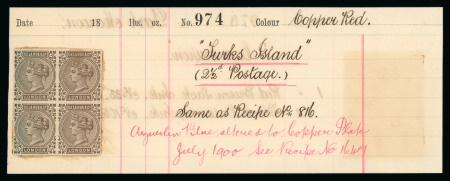 Date 18 lbs. oz. No. 974 Colour Copper Red.
"Turks Island"
(2½d Postage.)
Same as Recipe No 816.
Blue altered to Copper
July 1900 See Recipe No 1647
LONDON LONDON